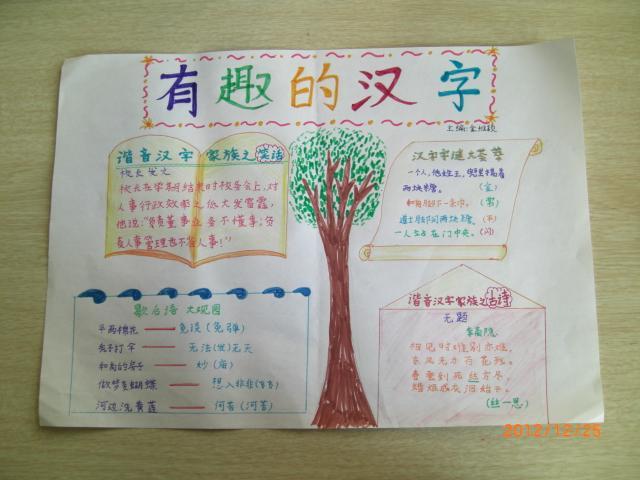 有趣的汉字
主编:金
谐音汉字 家族之 笑话
校长发之
校长在学期结束时校务会上,对
人事行政效率之低大发雷霆,
他说:"负责董事
责人事管理也不管人事!"
汉字字谜大荟萃
一个人,他姓王,兜里揣着
两块糖。 (金)
(男)
(平)
一人站在门中央。(闪)
歇后语 大观园
免谈(免弹)
秃子打伞 无法(发)无天
和尚的房子 妙(庙)
做梦变蝴蝶 想入非非(飞飞)
河边洗黄莲 何苦(河苦)
谐音汉字家族之古诗
无题
李商隐
相见时难别亦难,
东风无力百花残。
春蚕到死丝方尽
蜡炬成灰泪始干。
(丝一思)
2012/12/25